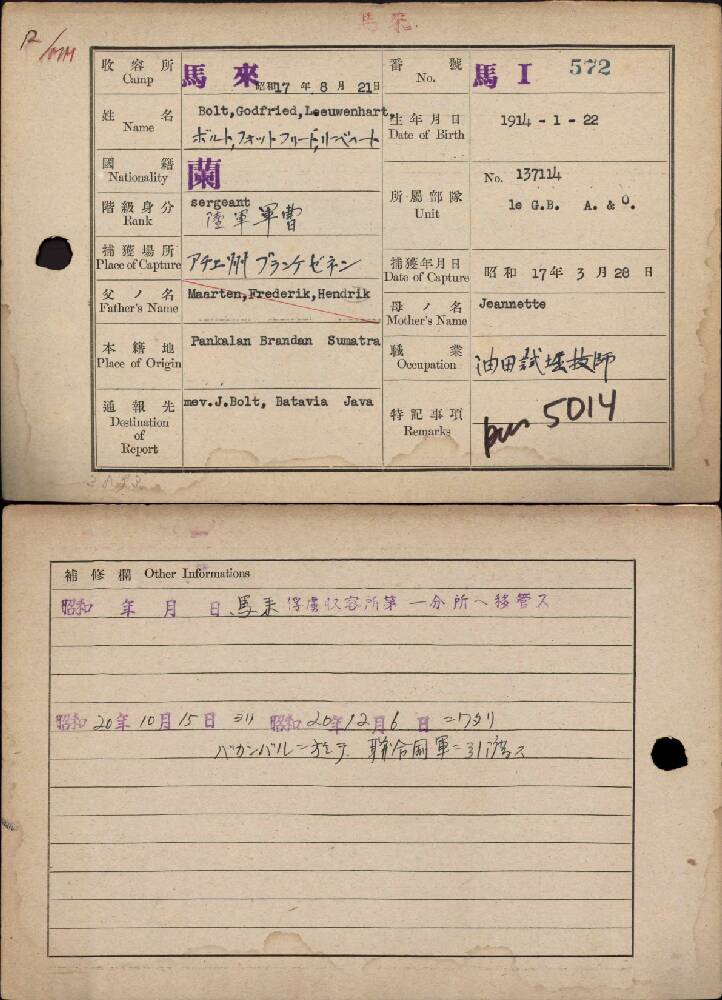 馬來
收容所 Camp 馬來 昭和17年8月21日
番號 No. 馬 I 572
姓名 Name Bolt,Godfried,Leeuwenhart,
ボルト,フオットフリード,リーベハート
生年月日 Date of Birth 1914 - 1 - 22
國籍 Nationality 蘭
階級身分 Rank sergeant
陸軍軍曹
所屬部隊 Unit No. 137114
1e G.B. A. & O.
捕獲場所 Place of Capture アチエ州 ブランケゼネン
捕獲年月日 Date of Capture 昭和 17年 3月28日
父ノ名 Father's Name Maarten,Frederik,Hendrik
母ノ名 Mother's Name Jeannette
本籍地 Place of Origin Pankalan Brandan Sumatra
職業 Occupation 油田試堀技師
通報先 Destination of Report mev.J.Bolt, Batavia Java
特記事項 Remarks 5014
補修欄 Other Informations
昭和 年 月 日 馬来俘虜収容所第一分所ヘ移管ス
昭和20年10月15日ヨリ昭和20年12月6日ニワタリ
パカンバルニ於テ 聯合國軍ニ引渡ス